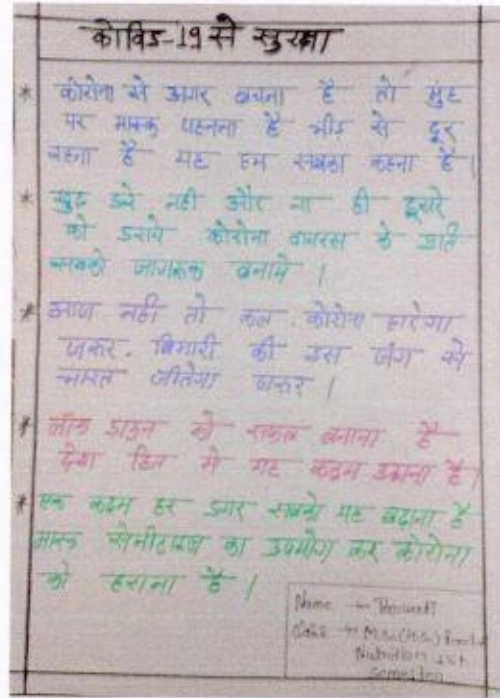 कोविड-19 से सुरक्षा
* कोरोना से अगर बचना है तो मुंह
पर मास्क पहनना है भीड से दूर
रहना है यह हम सबका कहना है।
* खुद डरे नही और ना ही दूसरे
को डराये कोरोना वायरस के प्रति
सबको जागरूक बनाये।
* आज नही तो कल. कोरोना हारेगा
जरूर. बिमारी की इस जंग से
भारत जीतेगा जरूर।
* लॉक डाउन को सफल बनाना है
देश हित मे यह कदम उठाना है।
* एक कदम हर डगर सबको यह बढाना है
मास्क सेनीटाइजर का उपयोग कर कोरोना
को हराना है।
Name →
Class → M.Sc (H.Sc) Food &
Nutrition 1st
semester